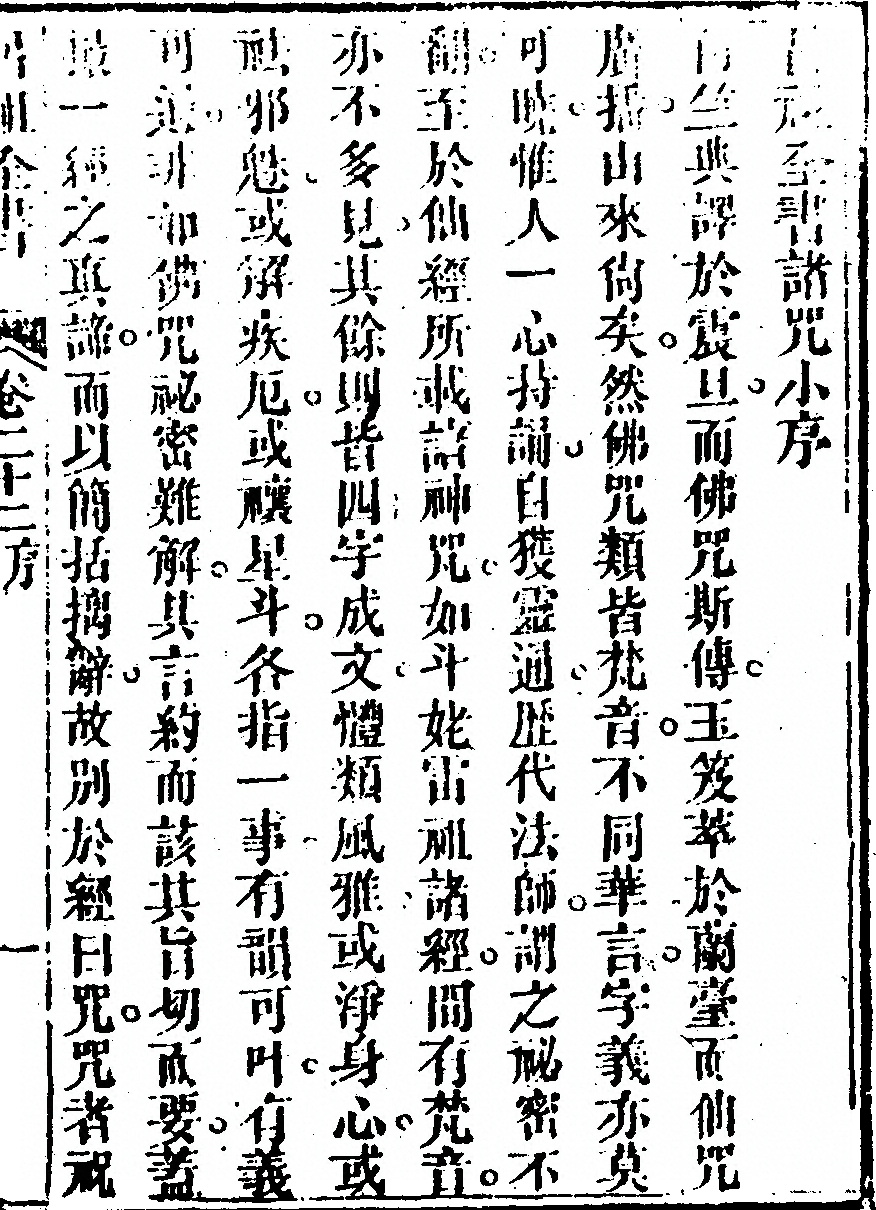 呂祖全書諸咒小序
自竺典譯於震旦而佛咒斯傳玉笈萃於蘭臺而仙咒
廣播山來尙矣然佛咒類皆梵音不同華言字義亦莫
可曉惟人一心持誦自獲靈通歷代法師謂之祕密不
翻至於仙經所載諸神咒如斗姥雷祖諸經間有梵音
亦不多見其餘則皆四字成文體類風雅或淨身心或
祛邪魅或解疾厄或禳星斗各指一事有韻可叶有義
可思非如佛咒祕密難解其言約而該其旨切而要蓋
最一經之眞諦而以簡括摛辭故別於經曰咒咒者祝
呂祖全書
卷二十二序
一